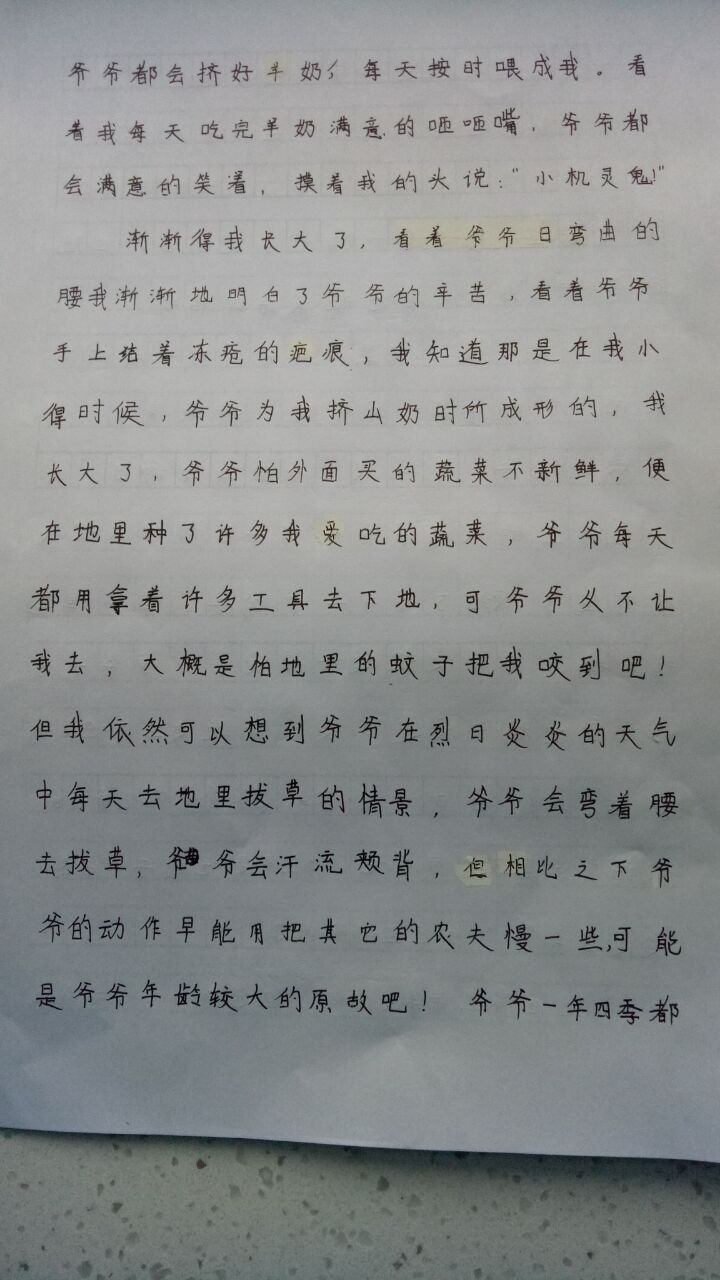 爷爷都会挤好羊奶，每天按时喂成我。看
着我每天吃完羊奶满意的咂咂嘴，爷爷都
会满意的笑着，摸着我的头说：“小机灵鬼！”
渐渐得我长大了，看着爷爷日弯曲的
腰我渐渐地明白了爷爷的辛苦，看着爷爷
手上结着冻疮的疤痕，我知道那是在我小
得时候，爷爷为我挤山奶时所成形的，我
长大了，爷爷怕外面买的蔬菜不新鲜，便
在地里种了许多我爱吃的蔬菜，爷爷每天
都用拿着许多工具去下地，可爷爷从不让
我去，大概是怕地里的蚊子把我咬到吧！
但我依然可以想到爷爷在烈日炎炎的天气
中每天去地里拔草的情景，爷爷会弯着腰
去拔草，爷爷会汗流颊背，但相比之下爷
爷的动作早能用把其它的农夫慢一些，可能
是爷爷年龄较大的原故吧！爷爷一年四季都